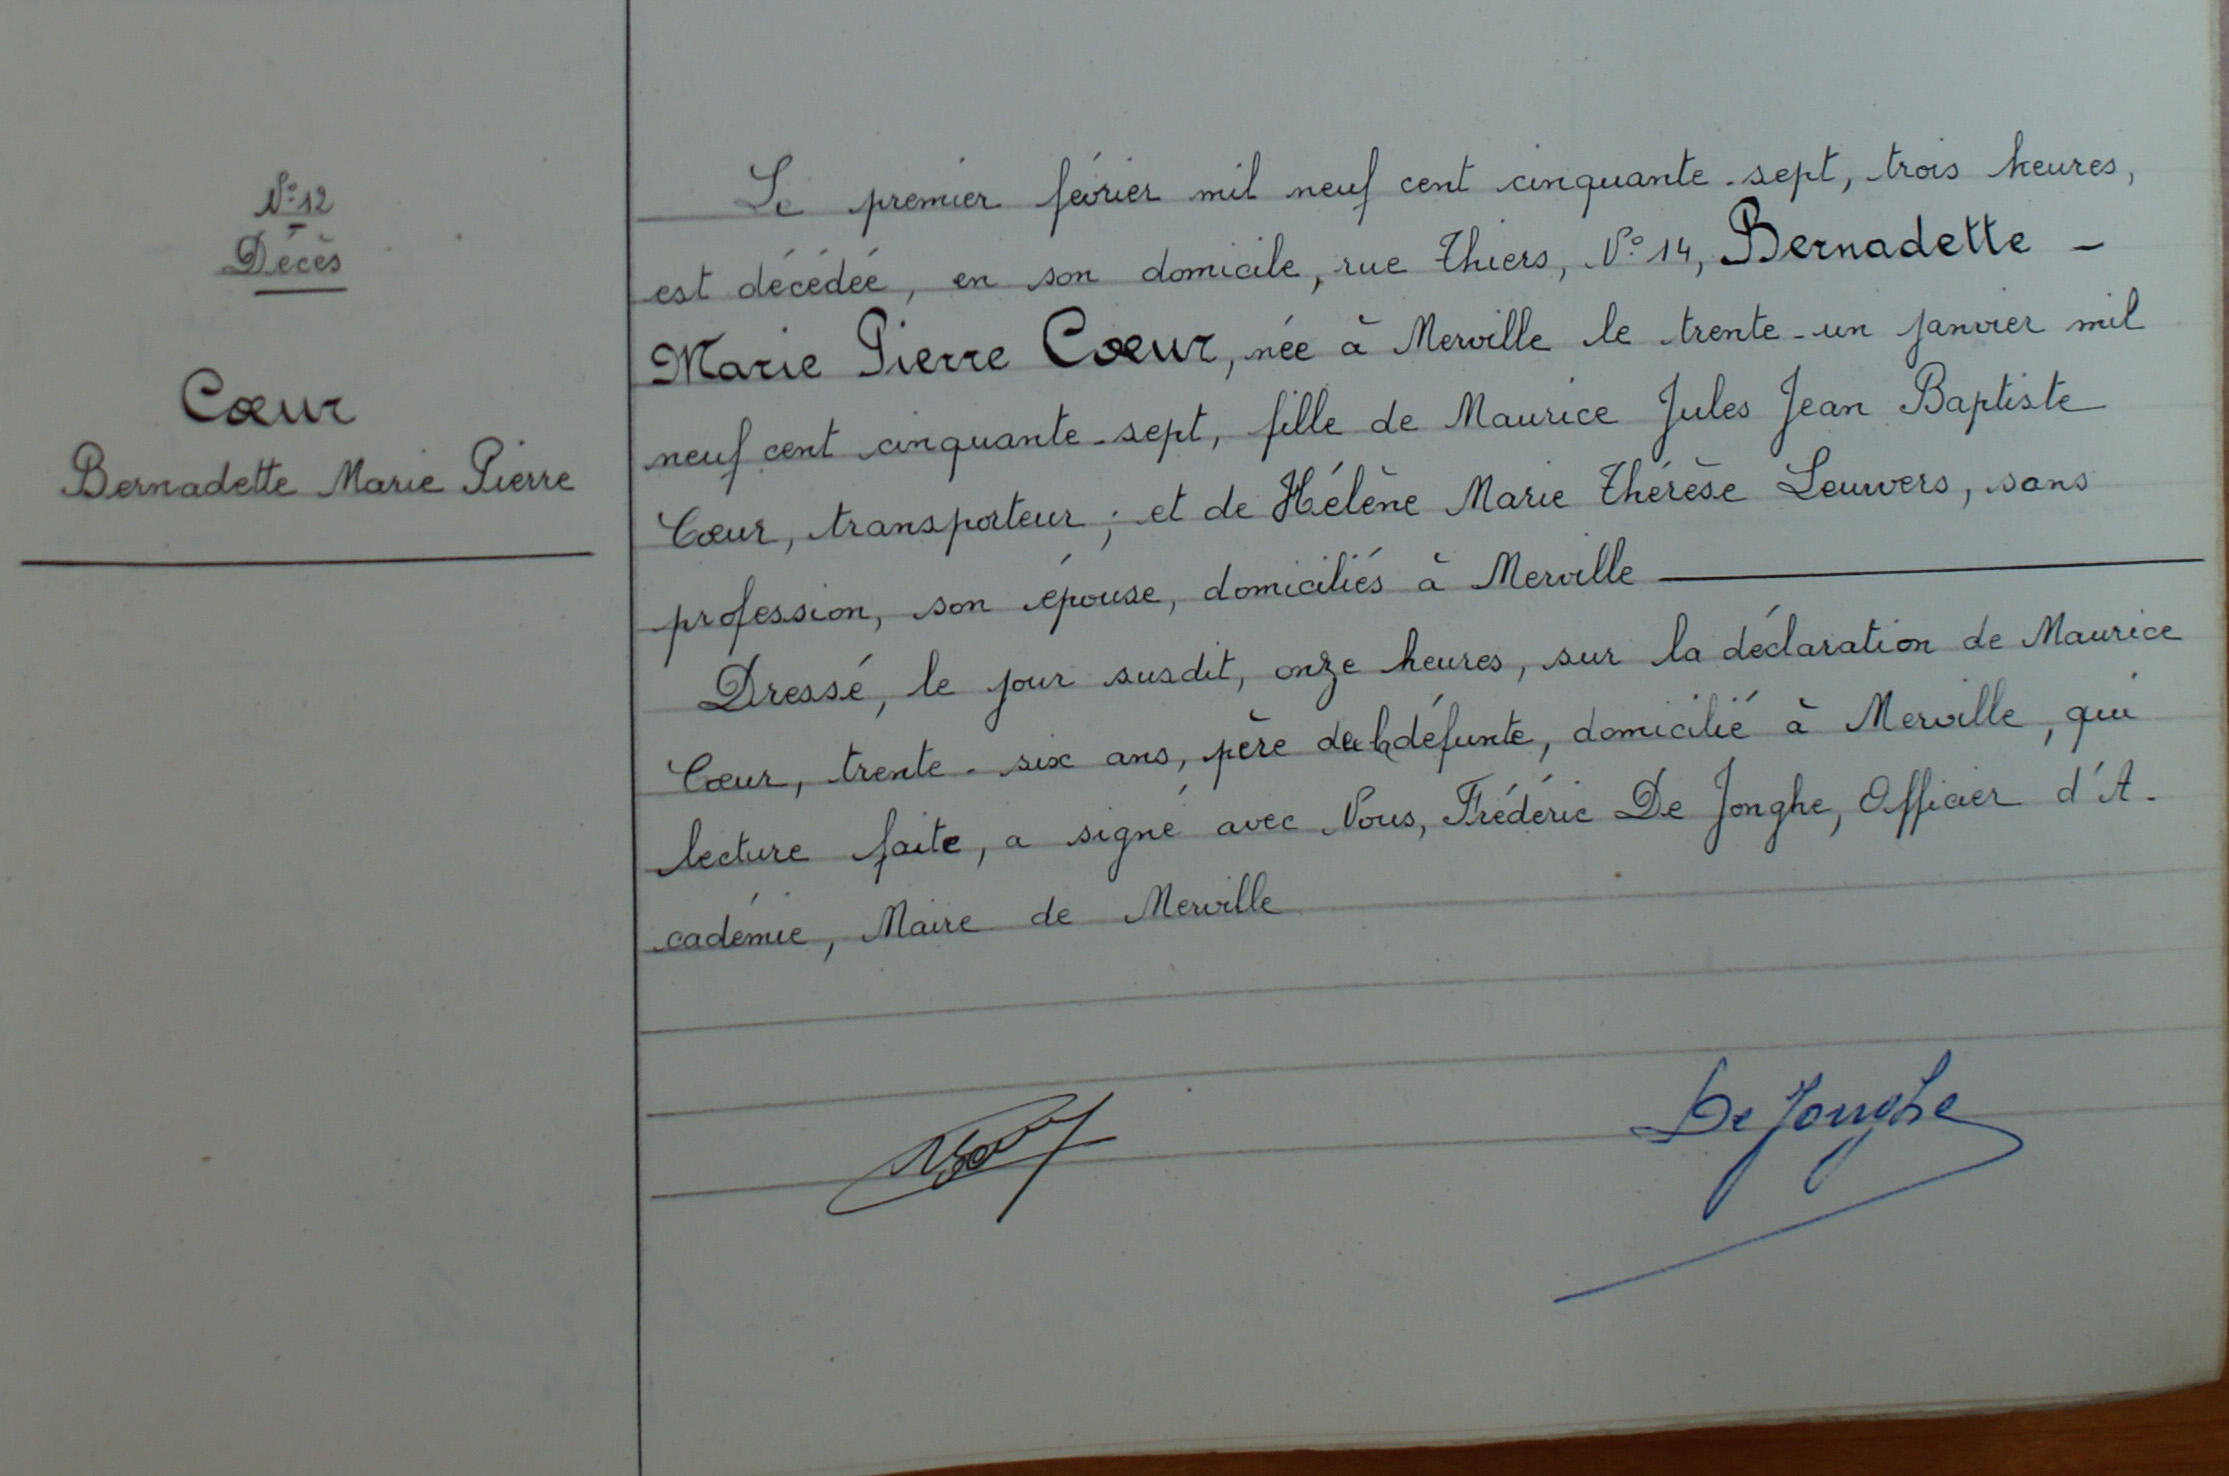 N° 12
Décès
Cœur
Bernadette Marie Pierre
Le premier février mil neuf cent cinquante-sept, trois heures,
est décédée, en son domicile, rue Thiers, N° 14, Bernadette -
Marie Pierre Cœur, née à Merville le trente-un janvier mil
neuf cent cinquante-sept, fille de Maurice Jules Jean Baptiste
Cœur, transporteur ; et de Hélène Marie Thérèse Leuwers, sans
profession, son épouse, domiciliés à Merville
Dressé, le jour susdit, onze heures, sur la déclaration de Maurice
Cœur, trente-six ans, père de la défunte, domicilié à Merville, qui
lecture faite, a signé avec Nous, Frédéric De Jonghe, Officier d'A-
cadémie, Maire de Merville
De Jonghe